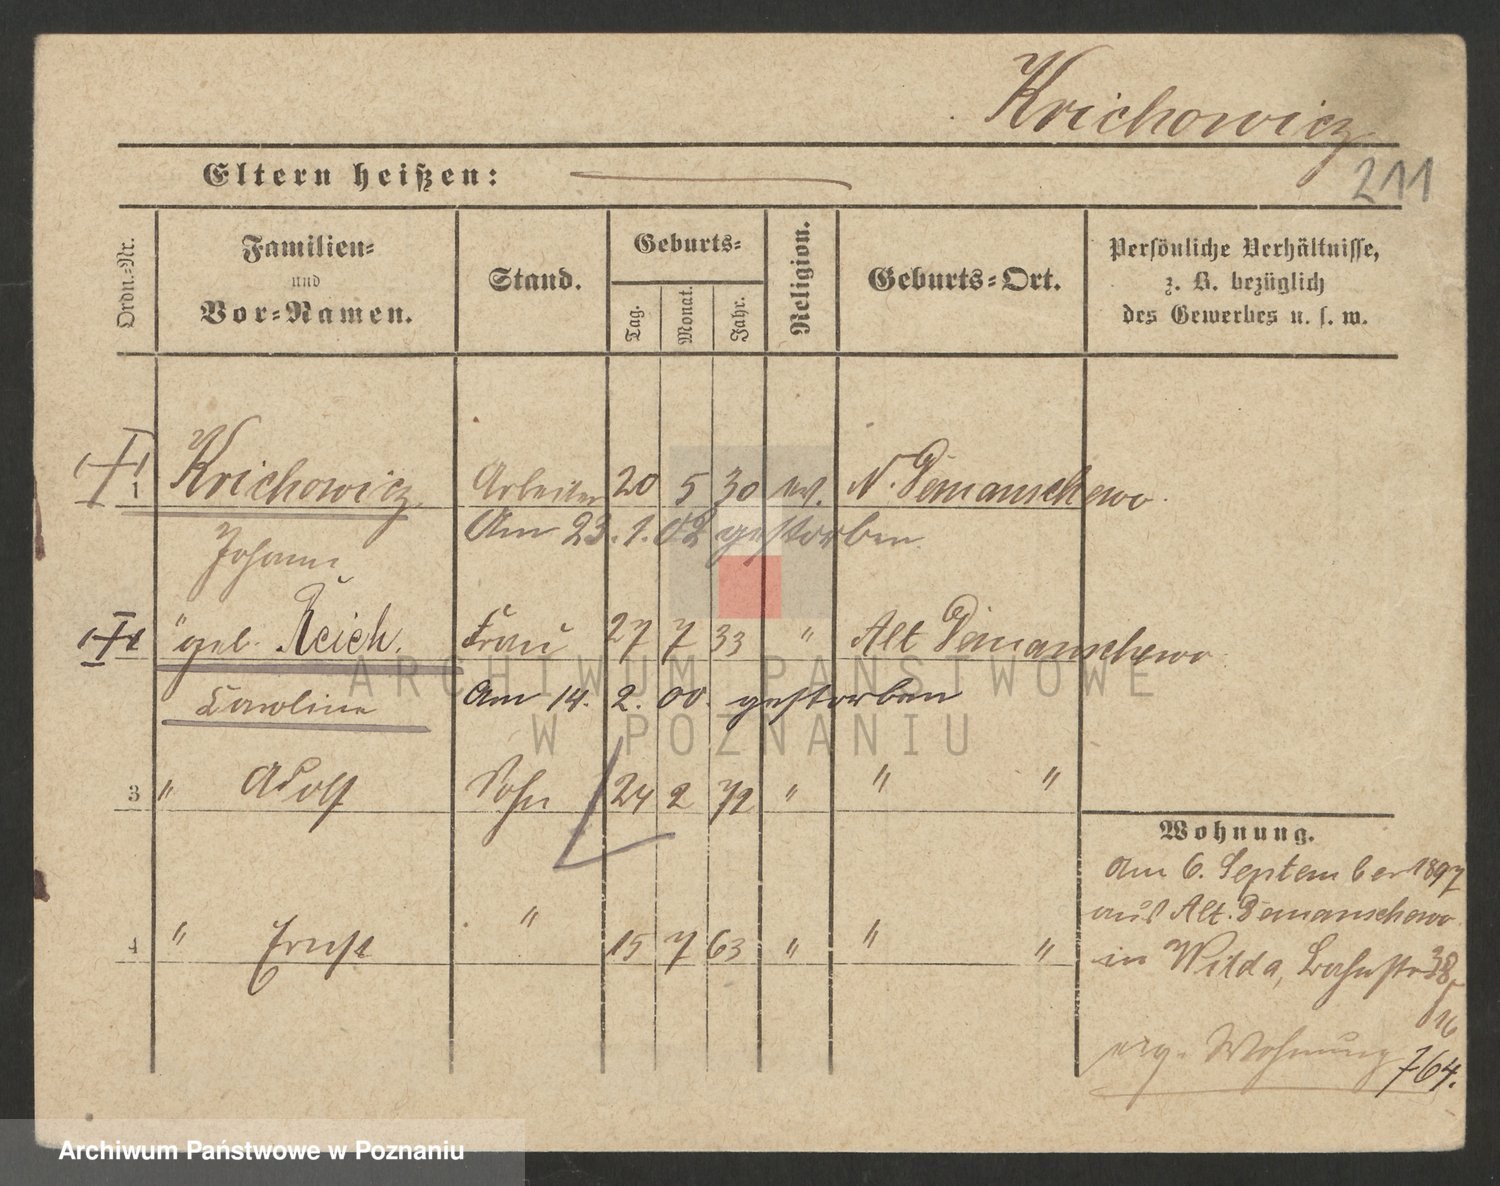 Krichowicz
211
Eltern heißen:
Ordn.-Nr.
Familien-
und
Vor-Namen.
Stand.
Geburts-
Tag.
Monat.
Jahr.
Religion.
Geburts-Ort.
Persönliche Verhältnisse,
z. B. bezüglich
des Gewerbes u. s. w.
1 Krichowicz Arbeiter 20 5 30 ev. N. Demanschewo
Johann Am 23. 1. 02 gestorben
" geb. Reich. Frau 27 7 33 " Alt Demanschewo
Karoline Am 14. 2. 00. gestorben
3 " Adolf Sohn 24 2 72 " " "
4 " Ernst " 15 7 63 " " "
Wohnung.
Am 6. September 1897
aus Alt. Demanschewo
in Wilda, Bahnstr 38
16
erg. Wohnung 764.
ARCHIWUM PAŃSTWOWE
W POZNANIU
Archiwum Państwowe w Poznaniu